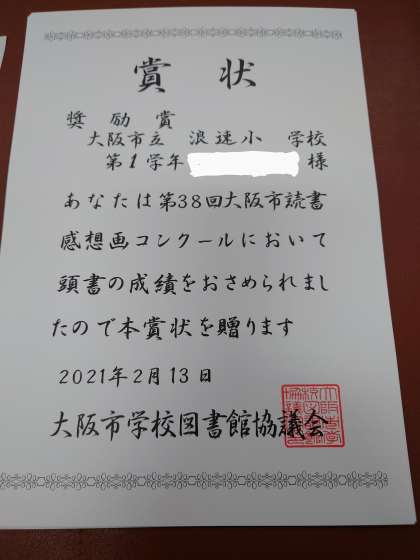 賞状
奨励賞
大阪市立 浪速小 学校
第1学年 様
あなたは第38回大阪市読書
感想画コンクールにおいて
頭書の成績をおさめられまし
たので本賞状を贈ります
2021年2月13日
大阪市学校図書館協議会